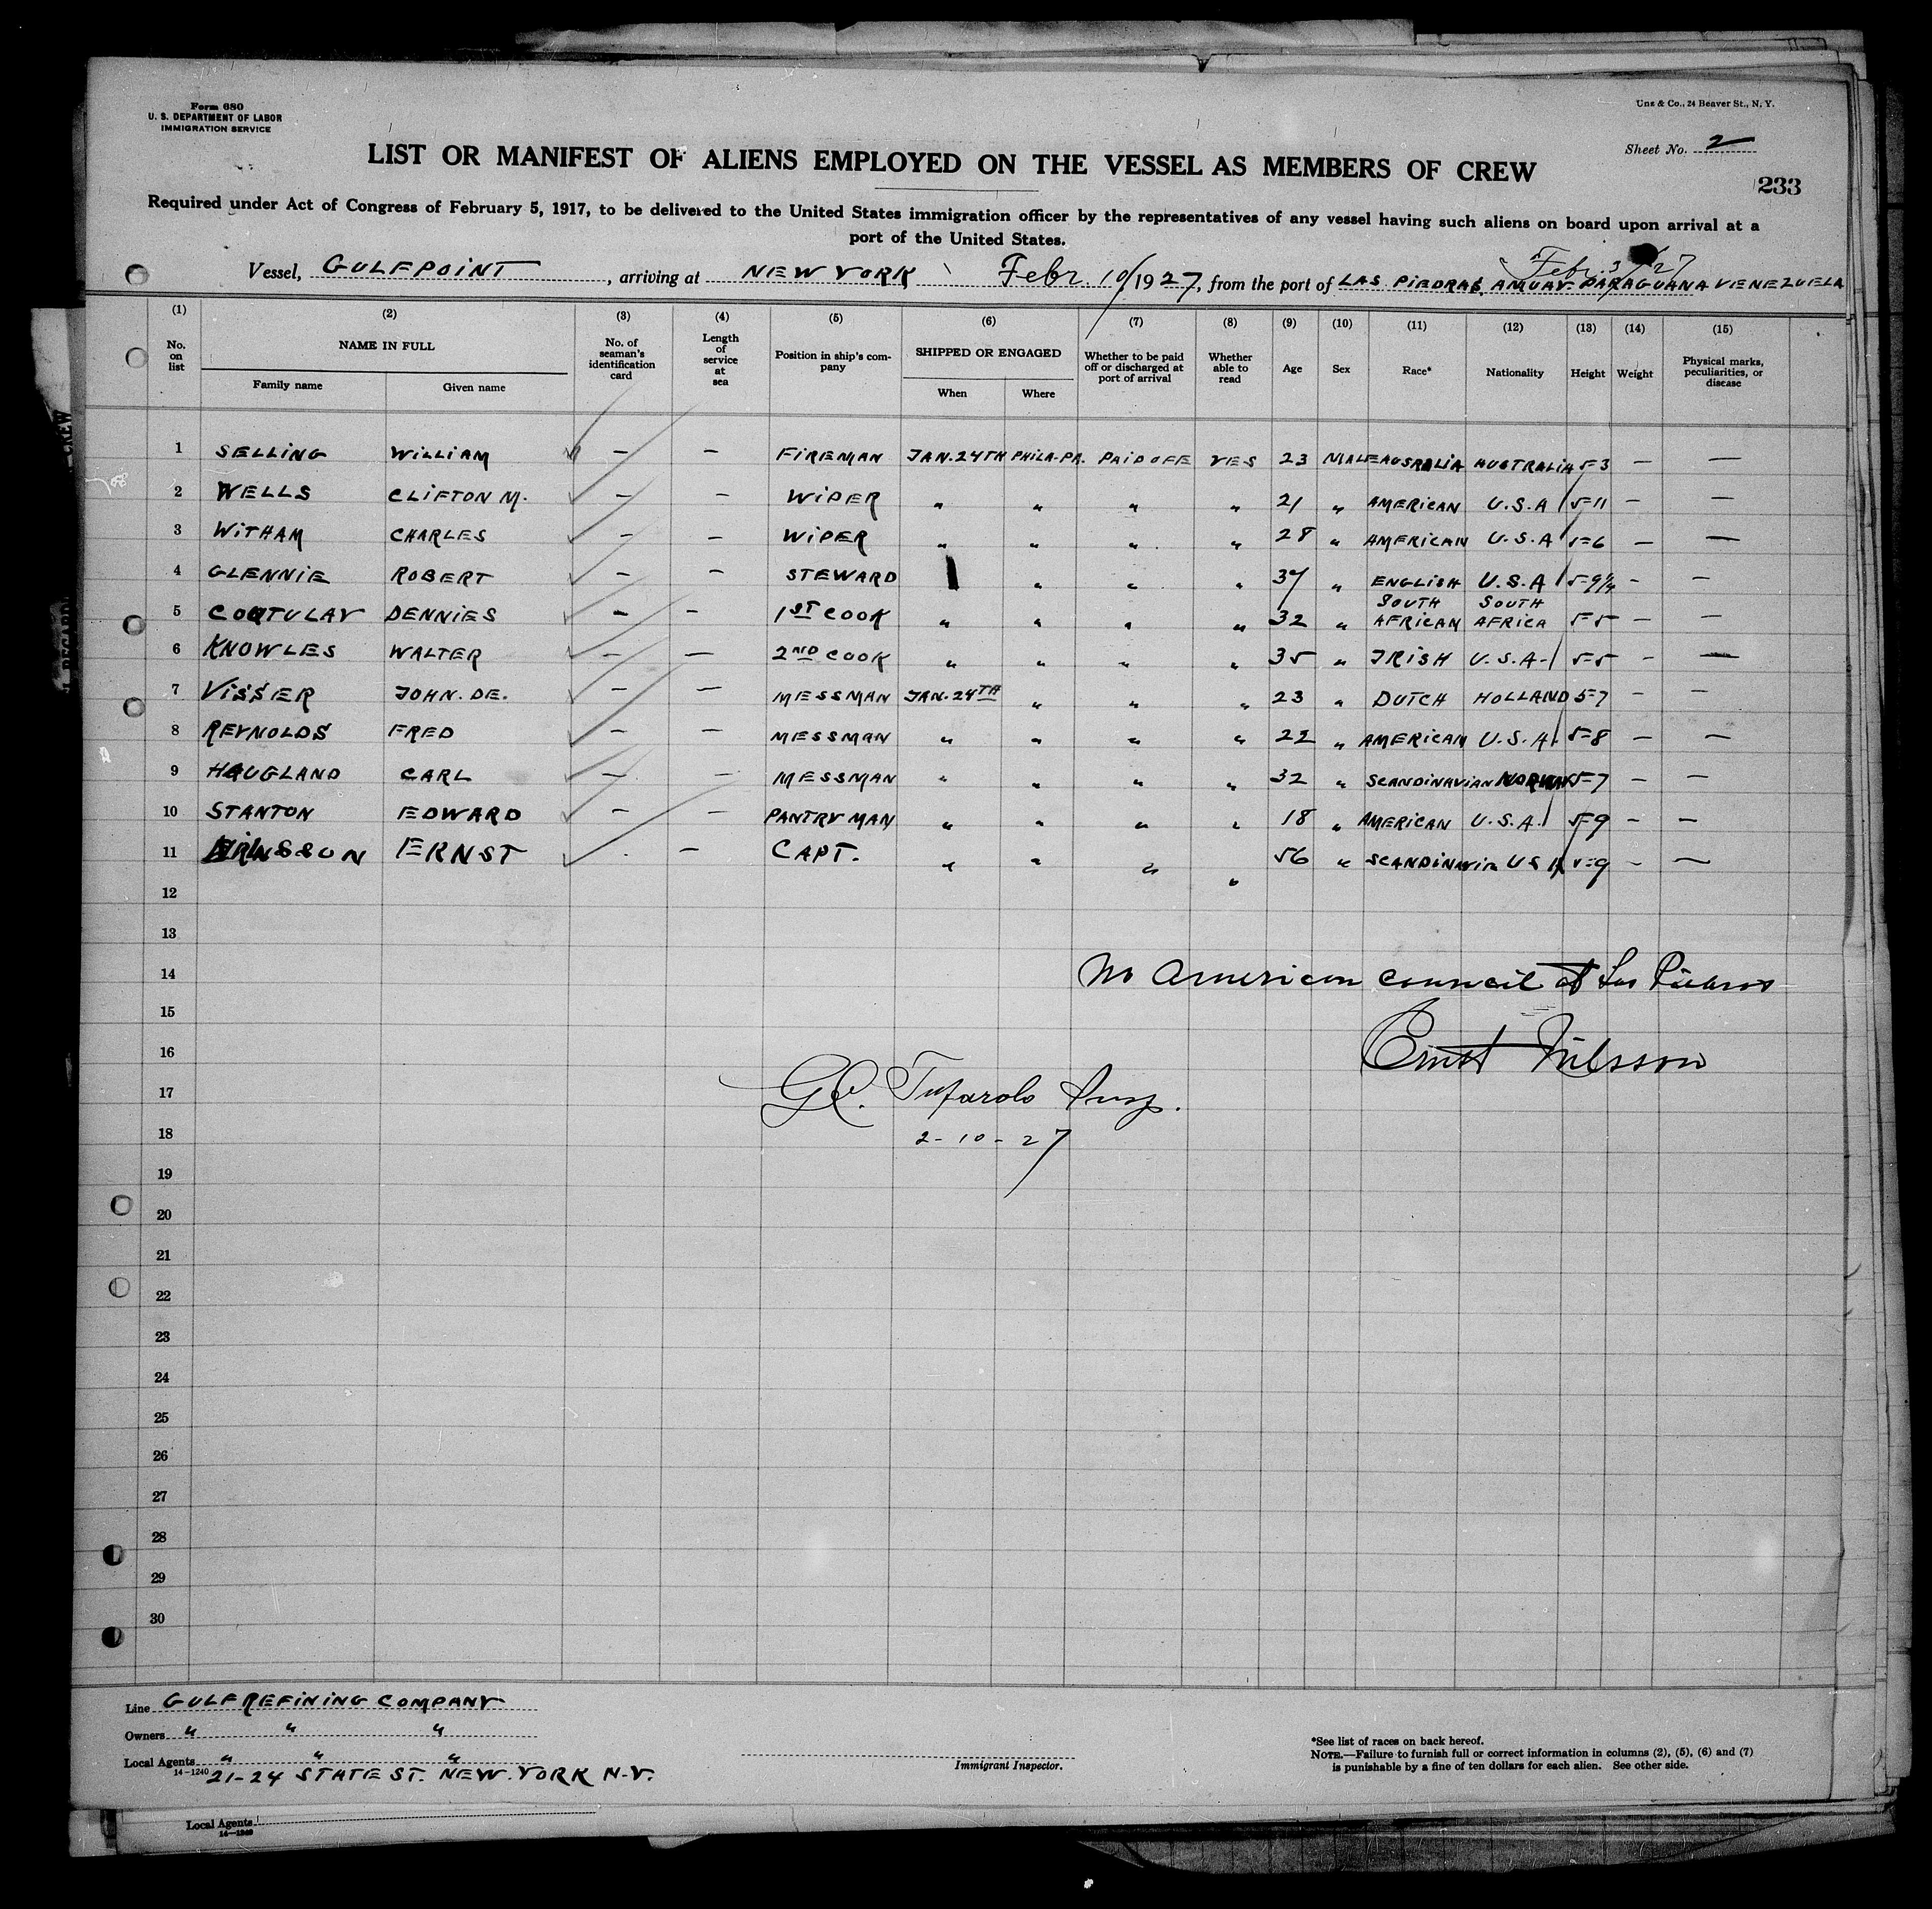 Form 680
U. S. DEPARTMENT OF LABOR
IMMIGRATION SERVICE
Uns & Co., 24 Beaver St., N. Y.
Sheet No. 2
LIST OR MANIFEST OF ALIENS EMPLOYED ON THE VESSEL AS MEMBERS OF CREW
233
Required under Act of Congress of February 5, 1917, to be delivered to the United States immigration officer by the representatives of any vessel having such aliens on board upon arrival at a
port of the United States.
Febr. 3/27
Vessel, GULFPOINT, arriving at NEW YORK Febr. 10/1927, from the port of LAS PIEDRAS, AMUAY PARAGUANA VENEZUELA
(1) (2) (3) (4) (5) (6) (7) (8) (9) (10) (11) (12) (13) (14) (15)
No. on list NAME IN FULL Family name Given name No. of seaman's identification card Length of service at sea Position in ship's company SHIPPED OR ENGAGED When Where Whether to be paid off or discharged at port of arrival Whether able to read Age Sex Race* Nationality Height Weight Physical marks, peculiarities, or disease
1 SELLING WILLIAM — — FIREMAN JAN. 24TH PHILA-PA. PAID OFF YES 23 MALE AUSRALIA AUSTRALIA 5=3 — —
2 WELLS CLIFTON M. — — WIPER " " " " 21 " AMERICAN U.S.A 5=11 — —
3 WITHAM CHARLES — — WIPER " " " " 28 " AMERICAN U.S.A 5=6 — —
4 GLENNIE ROBERT — — STEWARD " " " 37 " ENGLISH U.S.A 5=9 — —
5 DENNIES — — 1ST COOK " " " " 32 " SOUTH AFRICAN SOUTH AFRICA 5=5 — —
6 KNOWLES WALTER — — 2ND COOK " " " " 35 " IRISH U.S.A- 5=5 — —
7 VISSER JOHN. DE. — — MESSMAN JAN. 24TH " " " 23 " DUTCH HOLLAND 5=7 — —
8 REYNOLDS FRED — — MESSMAN " " " " 22 " AMERICAN U.S.A. 5=8 — —
9 HAUGLAND CARL — — MESSMAN " " " " 32 " SCANDINAVIAN NORWAY 5=7 — —
10 STANTON EDWARD — — PANTRY MAN " " " " 18 " AMERICAN U.S.A. 5=9 — —
11 ERNST — CAPT. " " " " 56 " SCANDINAVIA USA 5=9 — —
12
13
14 No American council at Las Piedras
15
16 Ernst Nilsson
17 Insp.
18 2-10-27
19
20
21
22
23
24
25
26
27
28
29
30
Line GULF REFINING COMPANY
Owners " " "
Local Agents " " "
14-1240 21-24 STATE ST. NEW YORK N.Y.
Immigrant Inspector.
*See list of races on back hereof.
NOTE.—Failure to furnish full or correct information in columns (2), (5), (6) and (7)
is punishable by a fine of ten dollars for each alien. See other side.
Local Agents
14-1240